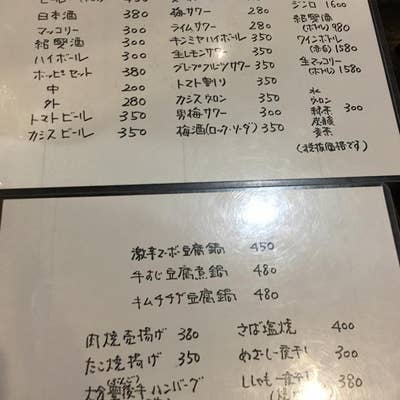 日本酒 380
マッコリー 300
紹興酒 300
ハイボール 300
ホッピーセット 380
中 200
外 280
トマトビール 350
カシスビール 350
梅サワー 280
ライムサワー 280
キンミヤハイボール 350
生レモンサワー 350
グレープフルーツサワー 350
トマト割り 350
カシスウロン 350
男梅サワー 350
梅酒(ロック・ソーダ) 350
ジンロ 1600
紹興酒
(ボトル) 980
ワインボトル
(赤白) 1580
生マッコリー
(ボトル) 1580
水
ウロン
緑茶 300
炭酸
麦茶
(税抜価格です)
激辛マーボー豆腐鍋 450
牛すじ豆腐煮鍋 480
キムチチゲ豆腐鍋 480
肉焼売揚げ 380
たこ焼揚げ 350
ハンバーグ
さば塩焼 400
めざし一夜干し 300
ししゃも一夜干し 380